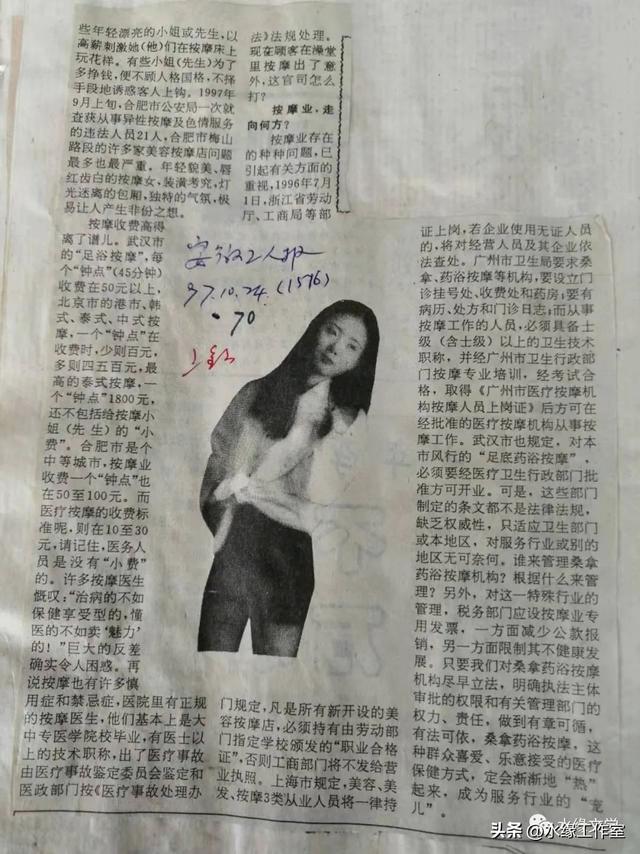 些年轻漂亮的小姐或先生，以
高薪刺激她(他)们在按摩床上
玩花样。有些小姐(先生)为了
多挣钱，便不顾人格国格，不择
手段地诱惑客人上钩。1997年
9月上旬，合肥市公安局一次就
查获从事异性按摩及色情服务
的违法人员21人，合肥市梅山
路段的许多家美容按摩店问题
最多也最严重。年轻貌美、唇
红齿白的按摩女，装潢考究，灯
光迷离的包厢，独特的气氛，极
易让人产生非份之想。
按摩收费高得
离了谱儿。武汉市
的“足浴按摩”，每
个“钟点”(45分钟)
收费在50元以上，
北京市的港市、韩
式、泰式、中式按
摩，一个“钟点”在
收费时，少则百元，
多则四五百元，最
高的泰式按摩，一
个“钟点”1800元，
还不包括给按摩小
姐(先生)的“小
费”。合肥市是个
中等城市，按摩业
收费一个“钟点”也
在50至100元。而
医疗按摩的收费标
准呢，则在10至30
元，请记住，医务人
员是没有“小费”
的。许多按摩医生
慨叹：“治病的不如
保健享受型的，懂
医的不如卖‘魅力’
的！”巨大的反差
确实令人困惑。再
说按摩也有许多慎
用症和禁忌症，医院里有正规
的按摩医生，他们基本上是大
中专医学院校毕业，有医士以
上的技术职称，出了医疗事故
由医疗事故鉴定委员会鉴定和
医政部门按《医疗事故处理办
法》法规处理。
现在顾客在澡堂
里按摩出了意
外，这官司怎么
打？
按摩业，走
向何方？
按摩业存在
的种种问题，已
引起有关方面的
重视，1996年7月
1日，浙江省劳动
厅、工商局等部
门规定，凡是所有新开设的美
容按摩店，必须持有由劳动部
门指定学校颁发的“职业合格
证”，否则工商部门将不发给营
业执照。上海市规定，美容、美
发、按摩3类从业人员将一律持
证上岗，若企业使用无证人员
的，将对经营人员及其企业依
法查处。广州市卫生局要求桑
拿、药浴按摩等机构，要设立门
诊挂号处、收费处和药房；要有
病历、处方和门诊日志；而从事
按摩工作的人员，必须具备士
级（含士级）以上的卫生技术
职称，并经广州市卫生行政部
门按摩专业培训，经考试合
格，取得《广州市医疗按摩机
构按摩人员上岗证》后方可在
经批准的医疗按摩机构从事按
摩工作。武汉市也规定，对本
市风行的“足底药浴按摩”，
必须要经医疗卫生行政部门批
准方可开业。可是，这些部门
制定的条文都不是法律法规，
缺乏权威性，只适应卫生部门
或本地区，对服务行业或别的
地区无可奈何。谁来管理桑拿
药浴按摩机构？根据什么来管
理？另外，对这一特殊行业的
管理，税务部门应设按摩业专
用发票，一方面减少公款报
销，另一方面限制其不健康发
展。只要我们对桑拿药浴按摩
机构尽早立法，明确执法主体
审批的权限和有关管理部门的
权力、责任，做到有章可循，
有法可依，桑拿药浴按摩，这
种群众喜爱、乐意接受的医疗
保健方式，定会渐渐地“热”
起来，成为服务行业的“宠
儿”。
安徽工人报
97.10.24.(1576)
·70
水缘文学
头条 @水缘工作室